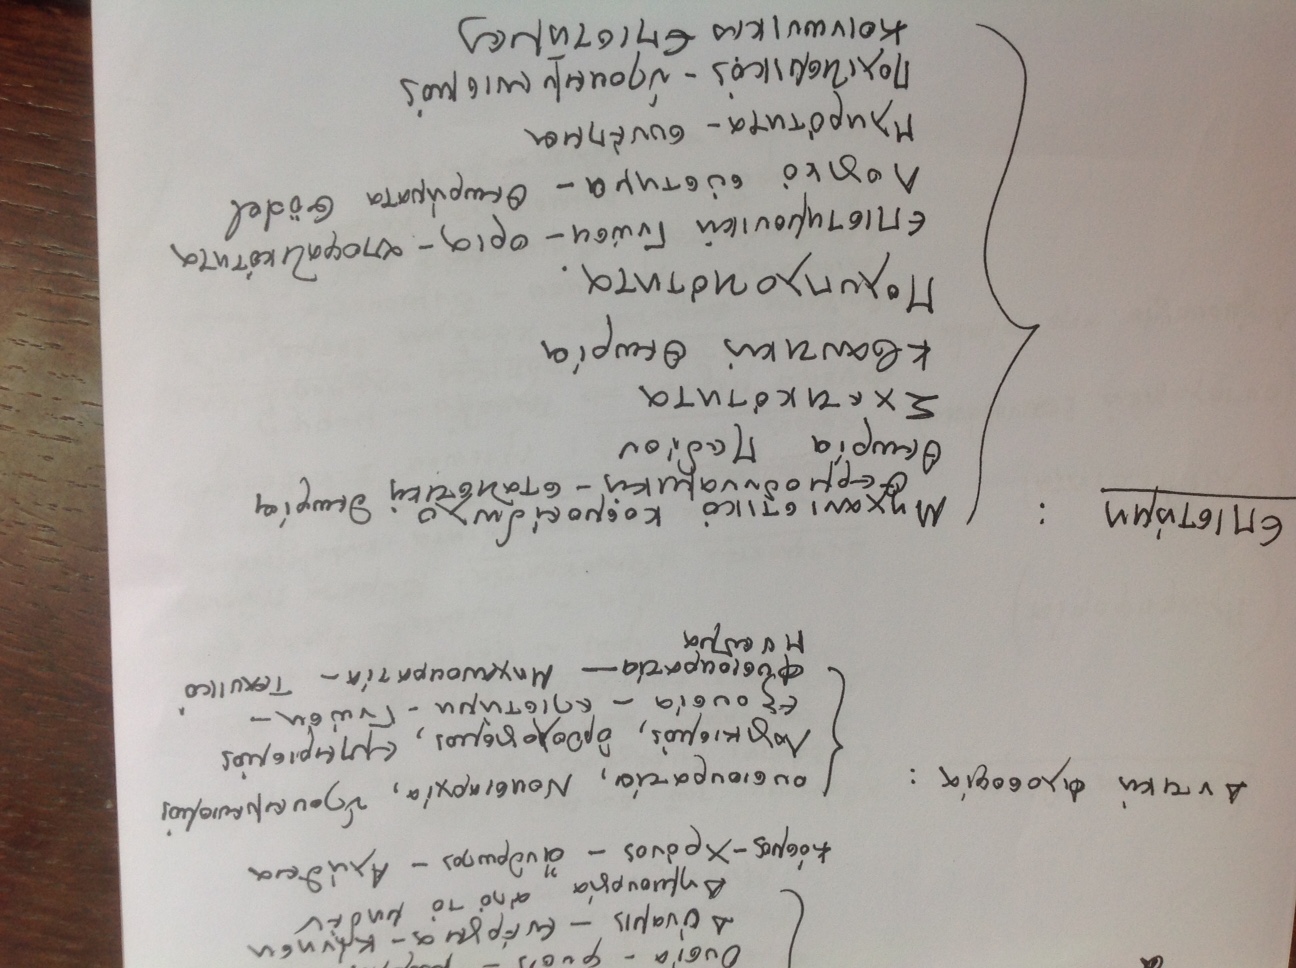 Ουσία - φύσις -
Δύναμις - Ενέργεια - Κίνηση
Δημιουργία από το μηδέν
Κόσμος - Χρόνος - άνθρωπος - Αλήθεια
Δυτική Φιλοσοφία :
ουσιοκρατία, Νουσιαρχία, υποκειμενισμός
Λογικισμός, ορθολογισμός, εμπειρισμός
Εξουσία - επιστήμη - Γνώση -
Φυσιοκρατία - Μηχανοκρατία - Τεχνικό
Πνεύμα
Επιστήμη :
Μηχανιστικό κοσμοείδωλο
Θερμοδυναμική - στατιστική θεωρία
Θεωρία Πεδίου
Σχετικότητα
Κβαντική Θεωρία
Πολυπλοκότητα.
Επιστημονική Γνώση - όρια - αποφατικότητα
Λογικό σύστημα - Θεωρήματα Gödel
Πληρότητα - συνέπεια
Πολιτισμικός -
Κοινωνικές Επιστήμες